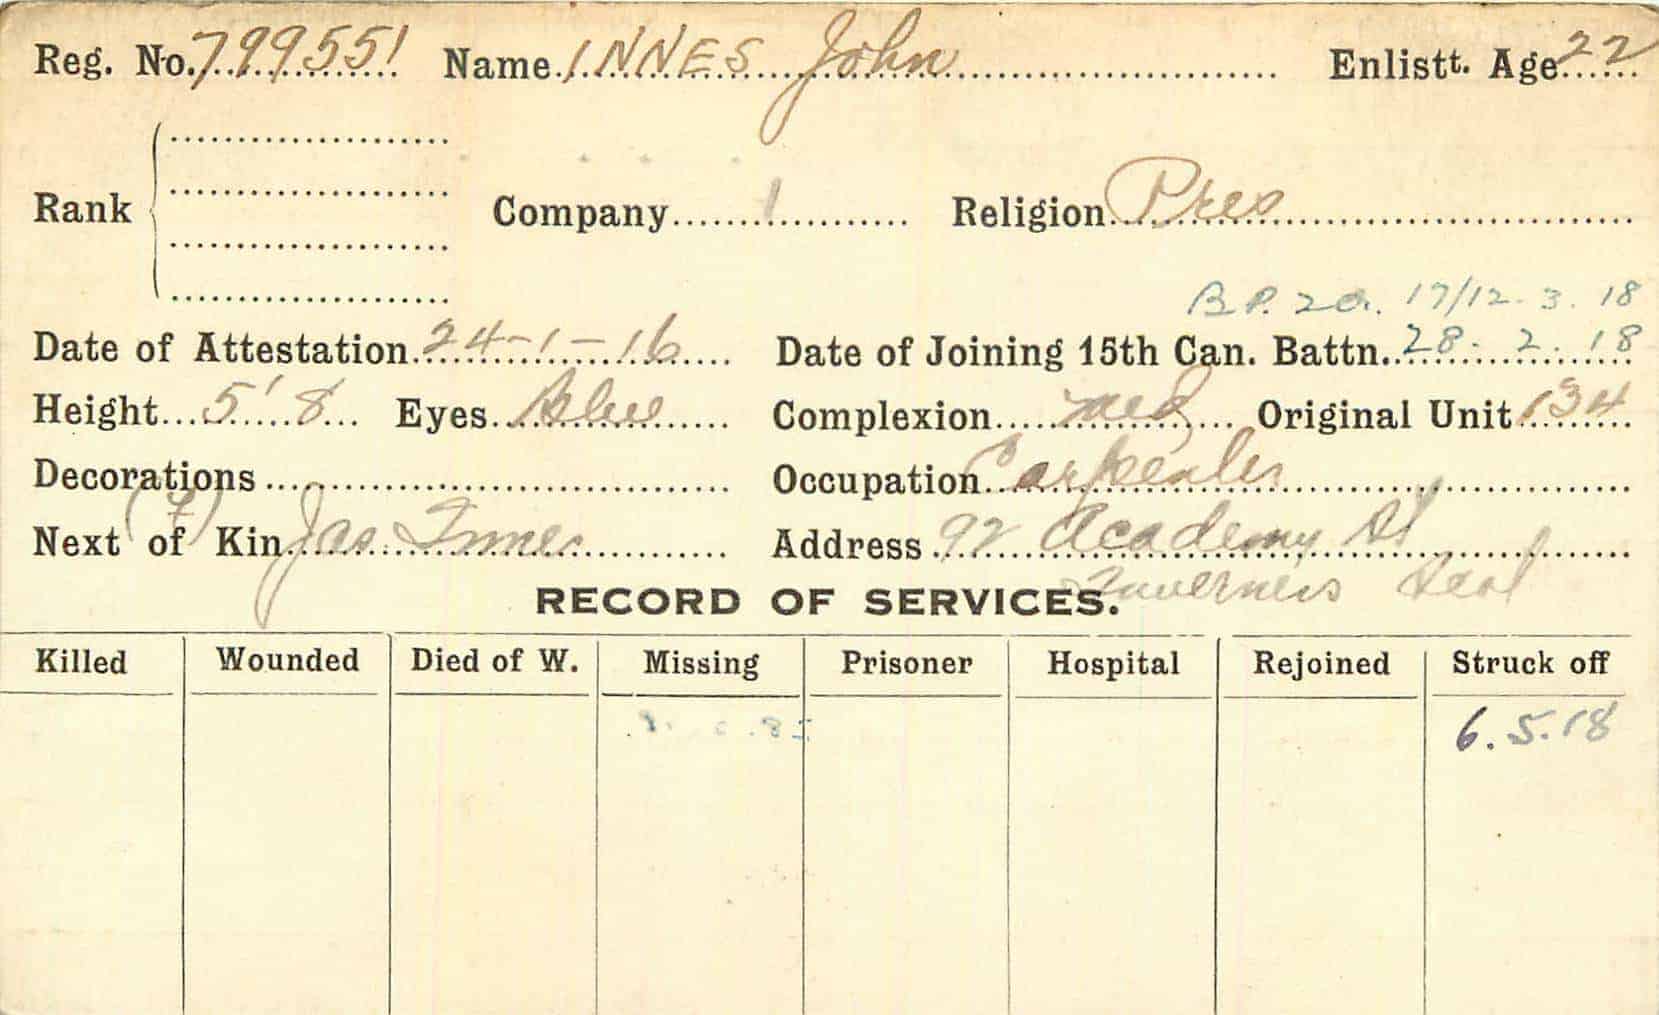 Reg. No. 799551 Name INNES John Enlistt. Age 22
Rank Company 1 Religion Pres
B.P. 20. 17/12.3.18
Date of Attestation 24-1-16 Date of Joining 15th Can. Battn. 28.2.18
Height 5'8 Eyes Blue Complexion med Original Unit 134
Decorations Occupation Carpenter
(F)
Next of Kin Jas. Innes Address 92 Academy St
Inverness Scot
RECORD OF SERVICES.
Killed Wounded Died of W. Missing Prisoner Hospital Rejoined Struck off
6.5.18